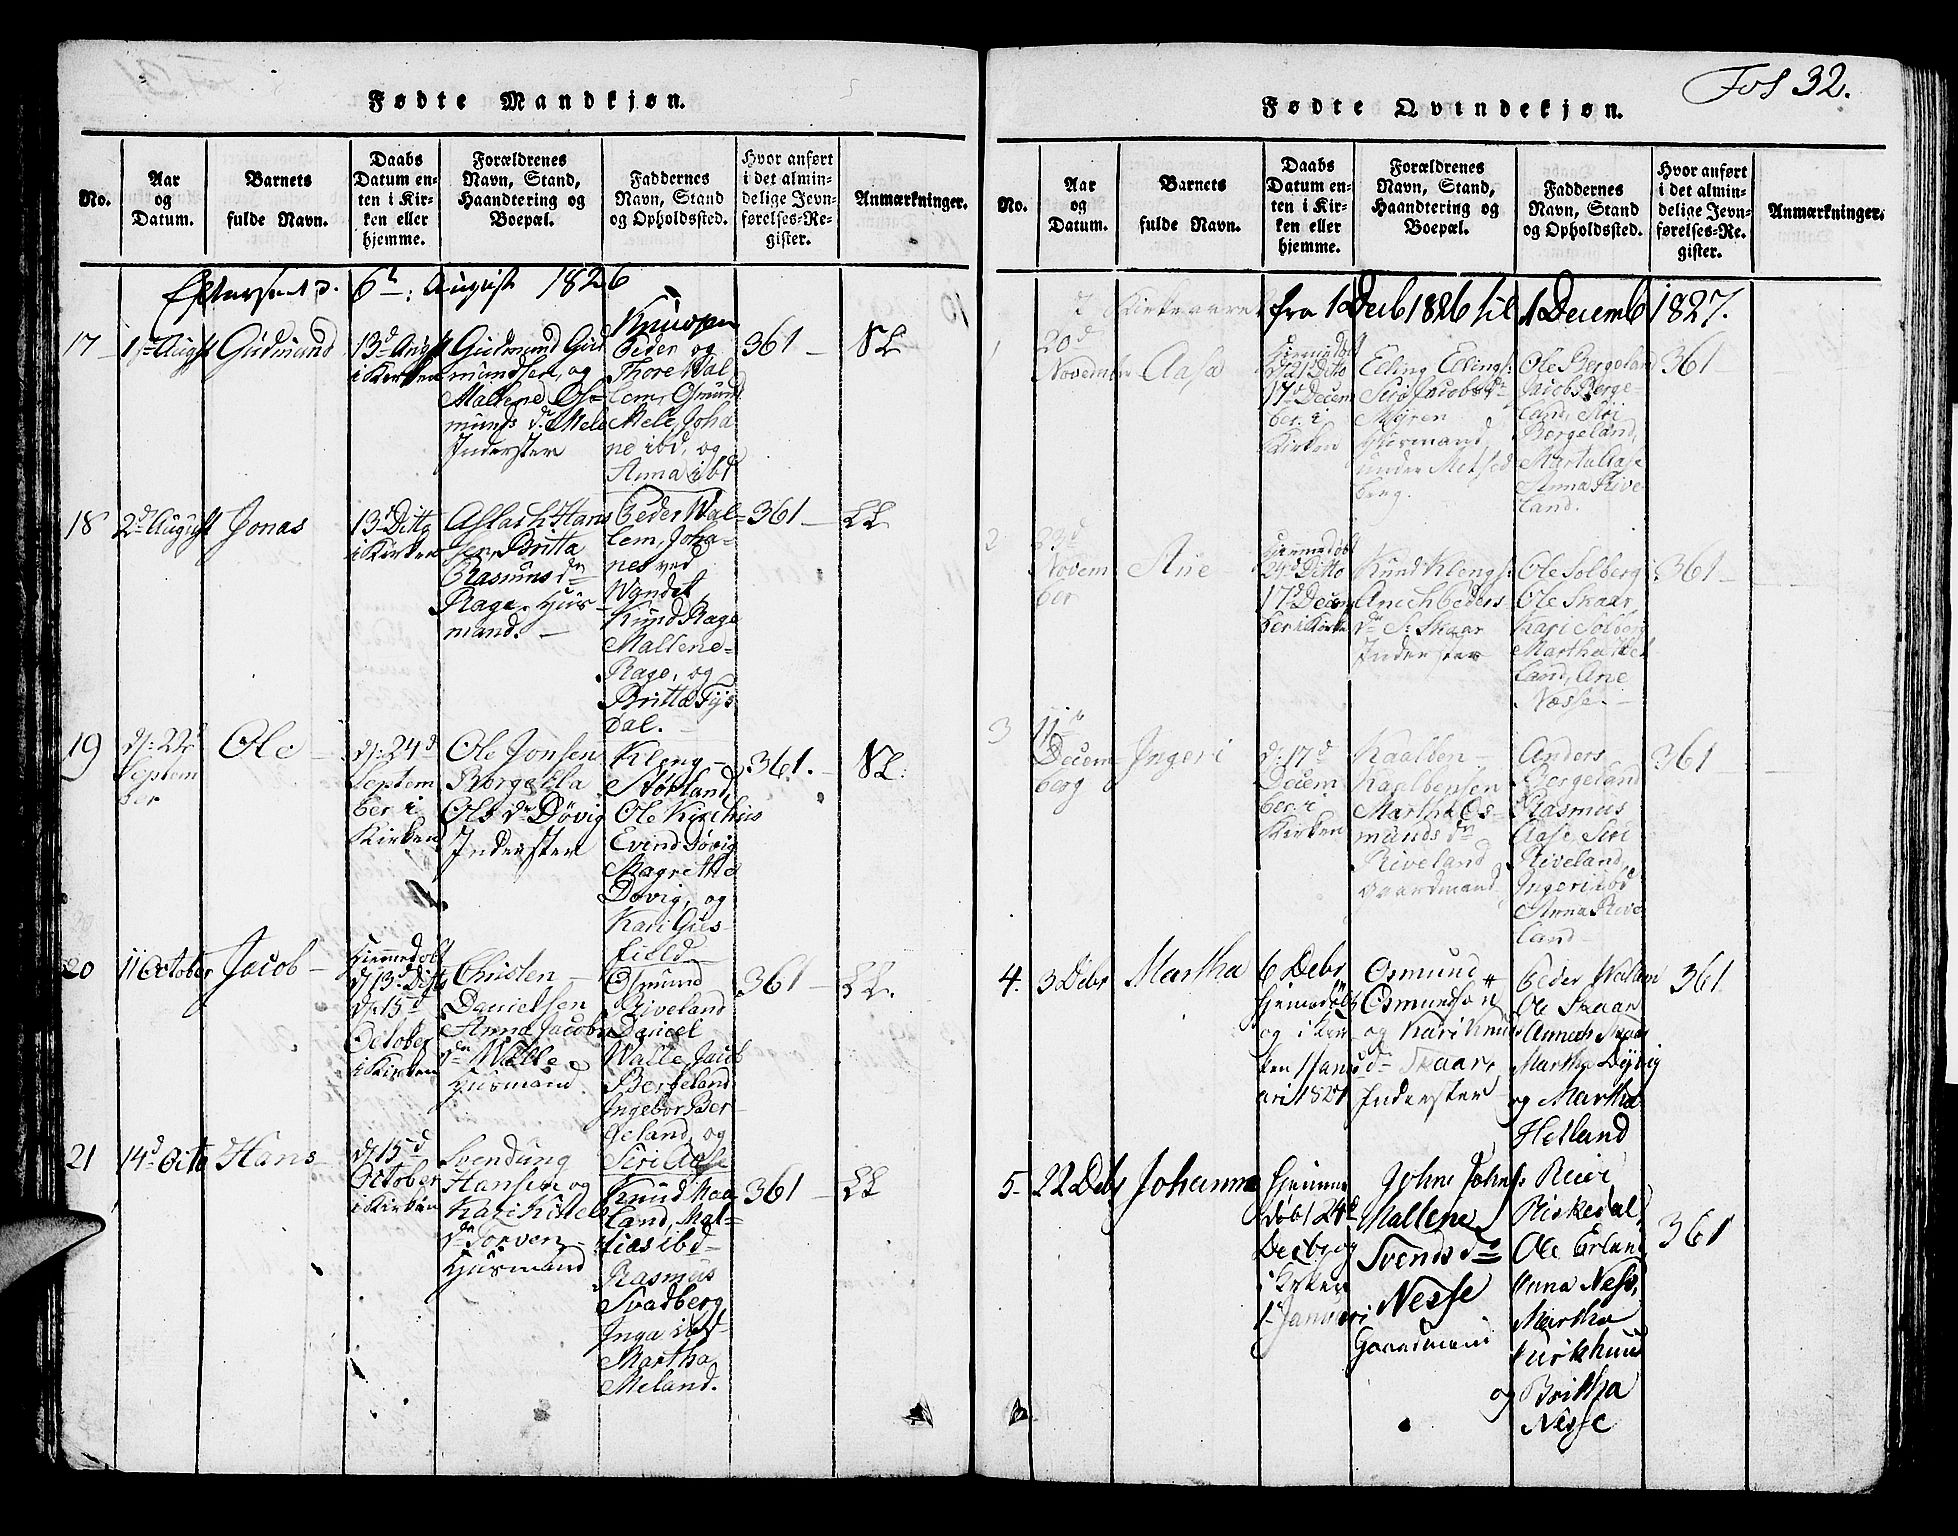 Fødte Mandkjøn.
No.
Aar
og
Datum.
Barnets
fulde Navn.
Daabs
Datum en-
ten i Kir-
ken eller
hjemme.
Forældrenes
Navn, Stand,
Haandtering og
Boepæl.
Faddernes
Navn, Stand
og Opholdssted.
Hvor anført
i det almin-
delige Jevn-
førelses-Re-
gister.
Anmærkninger.
6te August 1826
17
1ste August
Gudmund
13d August
i Kirken
Gudmund Gud
mundsen, og
Mallene Os-
munds dr. Mele
Inderster
Knudsen
Peder og
Thore Wal
lem, Osmund
Mele, Joha
ne ibd, og
Anna ibd
361
SL
18
2d August
Jonas
13d Ditto
i Kirken
Aslach Hans
sen, Britta
Rasmus dr
Rage. Huus
mand.
Peder Wal-
lem, Joha-
nes ved
Wandet
Knud Rage
Mallene
Rage, og
Britta Tys
dal.
361
LL
19
d: 22d
Septem
ber
Ole
d: 24d
Septem
ber i
Kirken
Ole Jonsen
Borge Ela
Ols dr Døvig
Inderster
Kleng
Størland,
Ole Kirkhus
Evind Døvig
Magrethe
Døvig, og
Kari Gils
field
361.
SL:
20
11 October
Jacob
Hiemedøbt
d: 13d Ditto
d: 15d
October
i Kirken
Christen
Danielsen
Anna Jacobs
dr Walle
Huusmand
Osmund
Riveland
Daniel
Walle, Jacob
Bergeland
Ingebor Ber
geland, og
Siri Aase
361
LL.
21
14d Octo
Hans
d: 15d
October
i Kirken
Svendung
Hansen og
Kari Kittels
dr Torven
Huusmand
Knud Maa
land, Mat-
tias ibd
Rasmus
Svadberg
Inga ibd
Martha
Meland.
361
LL
Fol 32.
Fødte Qvindekjøn.
No.
Aar
og
Datum.
Barnets
fulde Navn.
Daabs
Datum en-
ten i Kir-
ken eller
hjemme.
Forældrenes
Navn, Stand,
Haandtering og
Boepæl.
Faddernes
Navn, Stand
og Opholdssted.
Hvor anført
i det almin-
delige Jevn-
førelses-Re-
gister.
Anmærkninger.
i Kirkeaaret fra 1 Decb 1826 til 1 Decemb 1827.
1
20d
November
Aasa
Hiemmedøbt
d 21 Ditto
17d Decem
ber. i
Kirken
Elling Ellings:
Siri Jacobs dr
Myren
Huusmand
under Metsed
berg.
Ole Bergeland
Jacob Berge-
land, Siri
Bergeland,
Marta Aase
Anna Rive
land.
361
2
23d
Novem
ber
Ane
Hiemmedøbt
24d Ditto
17d Decem
ber i Kirke
Knud Klengs:
Anech Peders
dr S: Skaar
Inderster
Ole Solberg
Ole Skaar,
Kari Solberg
Martha Hel
land, Ane
Næsse.
361
3
11te
Decem
berg
Ingeri
d: 17d
Decem
ber. i
Kirken
Kaalben
Kaalbensen
Martha Os-
munds dr
Riveland
Gaardmand
Anders
Bergeland
Rasmus
Aase, Siri
Riveland,
Ingeri ibd
Anna Rive
land
361
4.
3 Debr
Martha
6 Debr
hjemedøbt
og i kir
ken 1 Janu
ari 1827
Osmund
Osmundsen
og Kari Knuds
dr Skaar,
Inderster
Peder Wallem
Ole Skaar
Annech Skaar
Martha Døyvig
og Martha
Helland
361
5.
22 Debr
Johanna
hjemme
døbt 24d
Decbr og
i Kirken
1 Januari
John Johns:
Mallene
Svends dr
Nesse
Gaardmand
Reier
Riskedal,
Ole Erland
Anna Nesse,
Martha
Kirkhuus
og Britha
Nesse
361